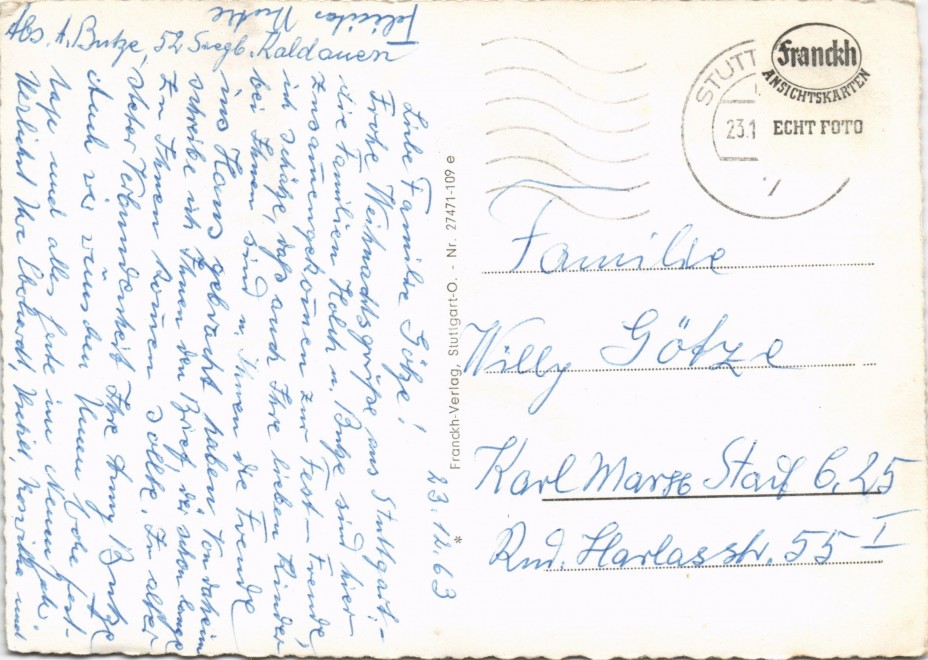 Abs. A. Butze, 52 Siegb. Kaldauen
23.12.63
Liebe Familie Götze!
Frohe Weihnachtsgrüße aus Stuttgart-
die Familien Holch u. Butze sind hier
zusammengekommen zur Fest-Freude,
ich schätze, daß auch Ihre lieben Kinder
bei Ihnen sind u. Ihnen die Freude
ins Haus gebracht haben. Von daheim
schreibe ich Ihnen den Brief, der schon lange
zu Ihnen kommen sollte. In alter
steter Verbundenheit Ihre Anny Butze
Auch wir wünschen Ihnen frohe Fest-
tage und alles Gute im Neuen Jahr.
Herzlichst Ihre
und
Franckh-Verlag, Stuttgart-O. - Nr. 27471-109 e
*
STUTT
23.1
Franckh
ANSICHTSKARTEN
ECHT FOTO
Familie
Willy Götze
Karl Marx Stadt C, 25
Rud. Harlasstr. 55 I